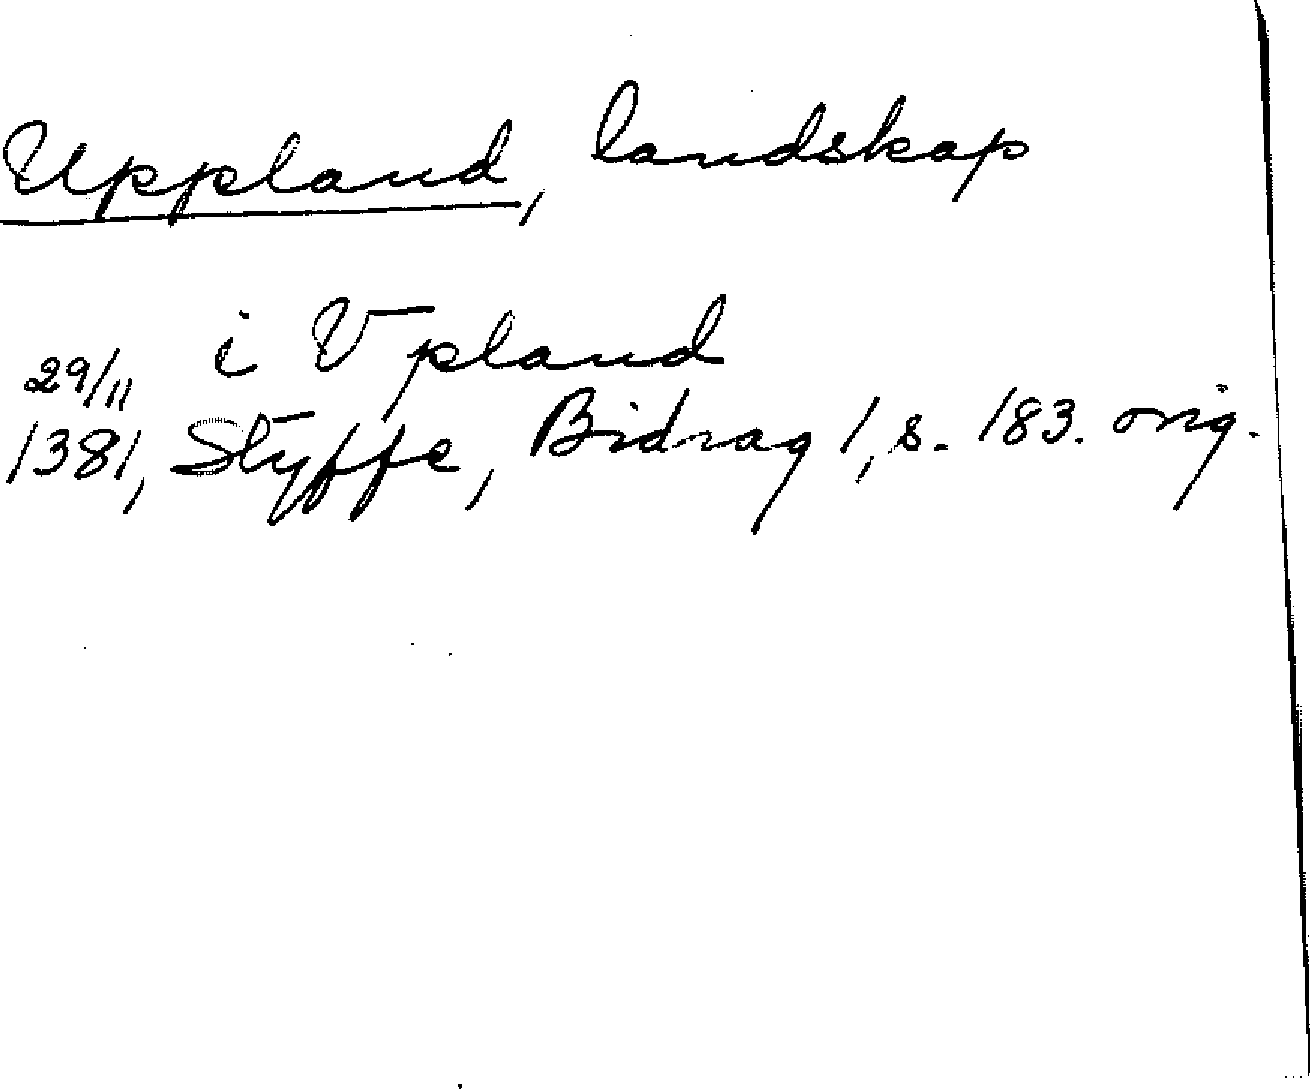 Uppland, landskap
i Vpland
29/11
1381, Styffe, Bidrag 1, s. 183. orig.